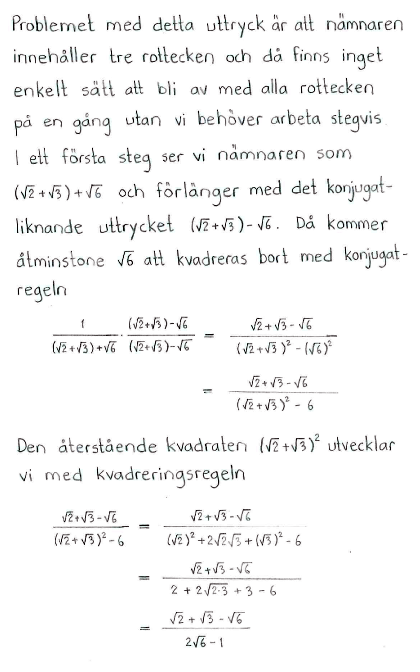 Problemet med detta uttryck är att nämnaren
innehåller tre rottecken och då finns inget
enkelt sätt att bli av med alla rottecken
på en gång utan vi behöver arbeta stegvis.
I ett första steg ser vi nämnaren som
(√2+√3)+√6 och förlänger med det konjugat-
liknande uttrycket (√2+√3)-√6. Då kommer
åtminstone √6 att kvadreras bort med konjugat-
regeln
1/((√2+√3)+√6) · ((√2+√3)-√6)/((√2+√3)-√6) = (√2+√3-√6)/((√2+√3)²-(√6)²)
= (√2+√3-√6)/((√2+√3)²-6)
Den återstående kvadraten (√2+√3)² utvecklar
vi med kvadreringsregeln
(√2+√3-√6)/((√2+√3)²-6) = (√2+√3-√6)/((√2)²+2√2√3+(√3)²-6)
= (√2+√3-√6)/(2+2√(2·3)+3-6)
= (√2+√3-√6)/(2√6-1)